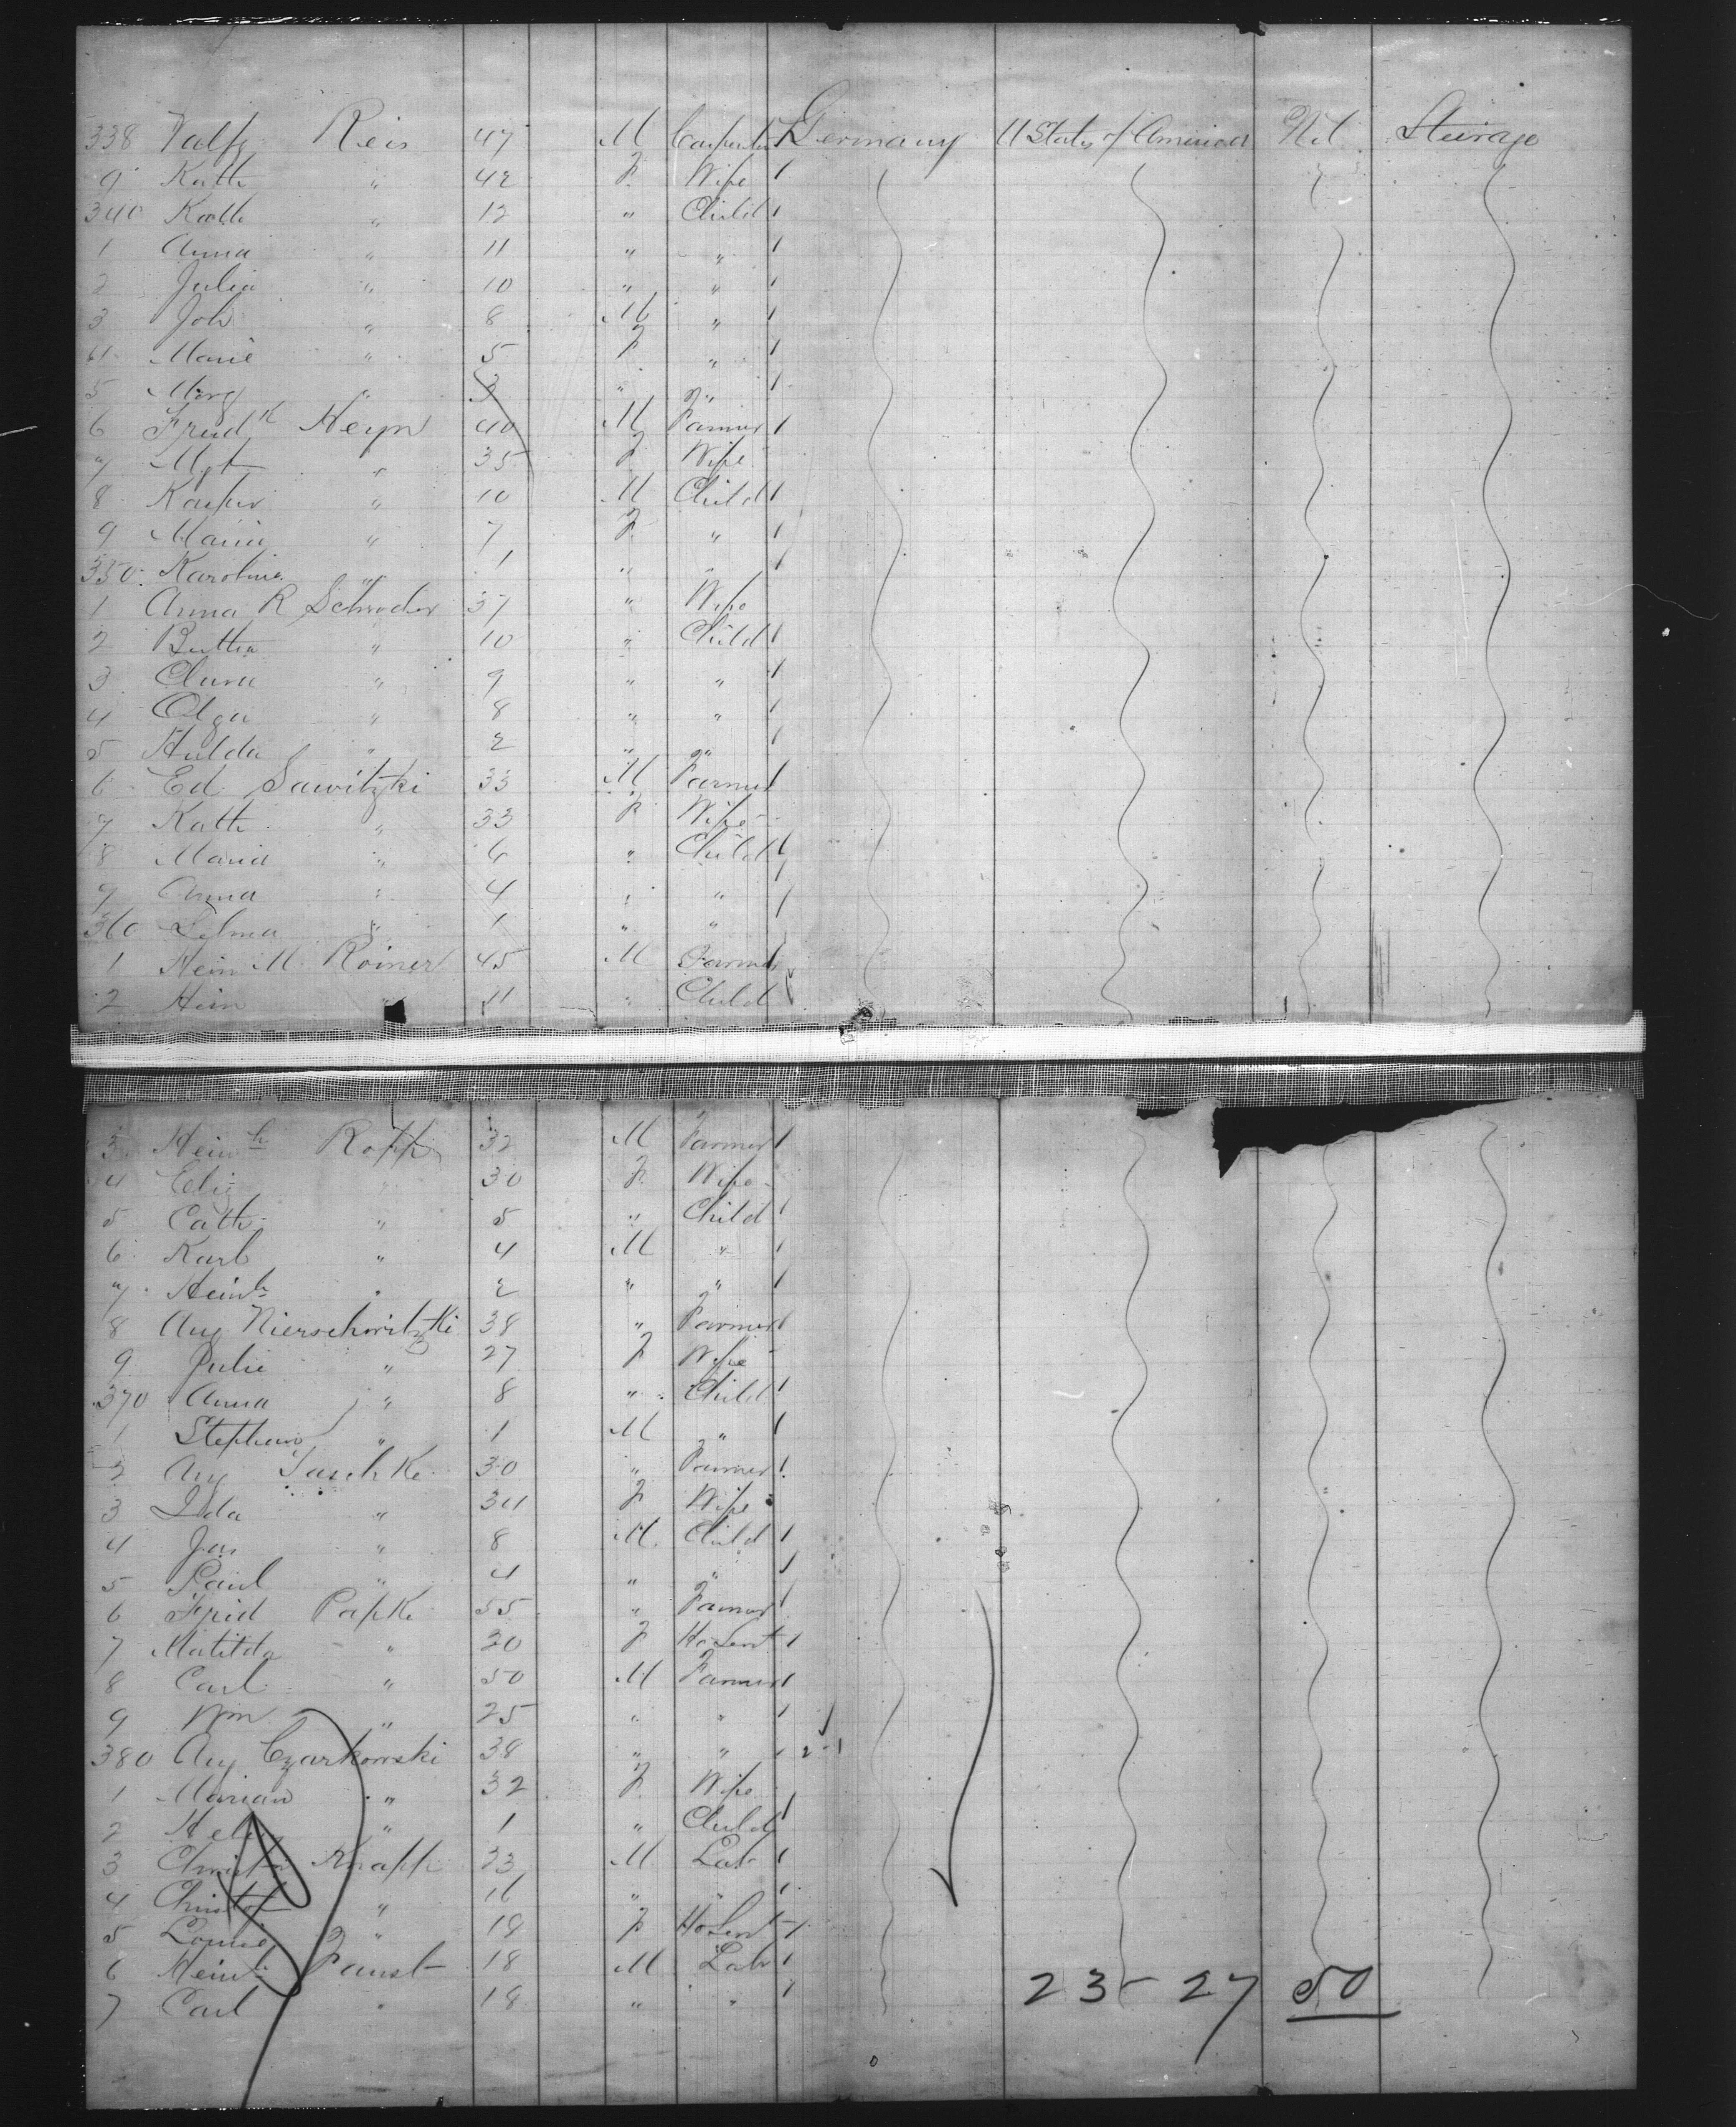 338 Valfg Reis 47 M Carpenter Germany U States of America Nil Steerage
9 Kath " 42 F Wife
340 Kath " 12 " Child
1 Anna " 11 " "
2 Julia " 10 " "
3 Joh " 8 M "
4 Marie " 5 F "
5 Marg " 3 " "
6 Fried k Heyn 40 M Farmer
7 Mgt " 35 F Wife
8 Kasper " 10 M Child
9 Maria " 7 F "
350 Karoline " 1 " "
1 Anna R Schroder 37 " Wife
2 Bertha " 10 " Child
3 Clara " 9 " "
4 Olga " 8 " "
5 Hulda " 2 " "
6 Ed Sawitzki 33 M Farmer
7 Kath " 33 F Wife
8 Maria " 6 " Child
9 Anna " 4 " "
360 Selma " 1 " "
1 Hein M. Roiner 45 M Farmer
2 Hein " 11 " Child
3 Hein h Ropp 32 M Farmer
4 Eliz " 30 F Wife
5 Cath " 5 " Child
6 Karl " 4 M "
7 Heinh " 2 " "
8 Aug Nierschwitzki 38 " Farmer
9 Julie " 27 F Wife
370 Anna " 8 " Child
1 Stephan " 1 M "
2 Aug Jaschke 30 " Farmer
3 Ida " 34 F Wife
4 Jas " 8 M Child
5 Paul " 4 " "
6 Fried Papke 55 " Farmer
7 Matilda " 20 F Ho Servt
8 Carl " 50 M Farmer
9 Wm " 25 " "
380 Aug Czarkowski 38 " " 2-1
1 Marian " 32 F Wife
2 Hel " 1 " Child
3 Knapp 23 M Lab
4 Christof " 16 " "
5 Louise " 18 F Ho Servt
6 Heinh Faust 18 M Lab
7 Carl " 18 " "
23 - 27 50